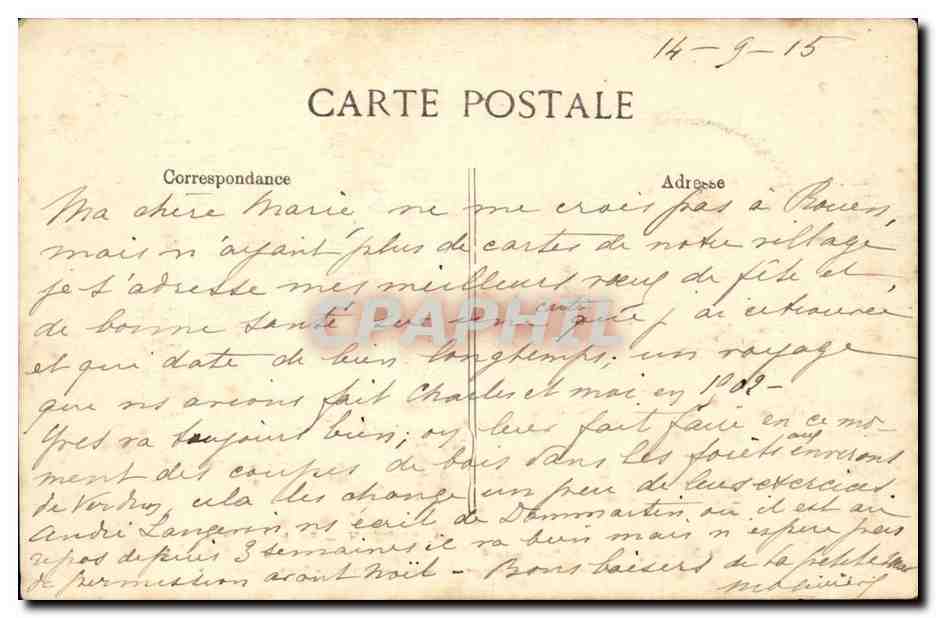 14-9-15
CARTE POSTALE
Correspondance
Adresse
Ma chère Marie, ne me crois pas à Rouen,
mais n'ayant plus de cartes de notre village
je t'adresse mes meilleurs vœux de fête et
de bonne santé sur une carte que j'ai retrouvée
et qui date de bien longtemps; un voyage
que ns avions fait Charles et moi en 1902-
Yves va toujours bien; on leur fait faire en ce mo-
ment des coupes de bois dans les forêts aux environs
de Verdun, cela les change un peu de leurs exercices.
André Langevin ns écrit de Dommartin où il est au
repos depuis 3 semaines il va bien mais n'espère pas
de permission avant Noël - Bons baisers de ta petite
CPAPHIL